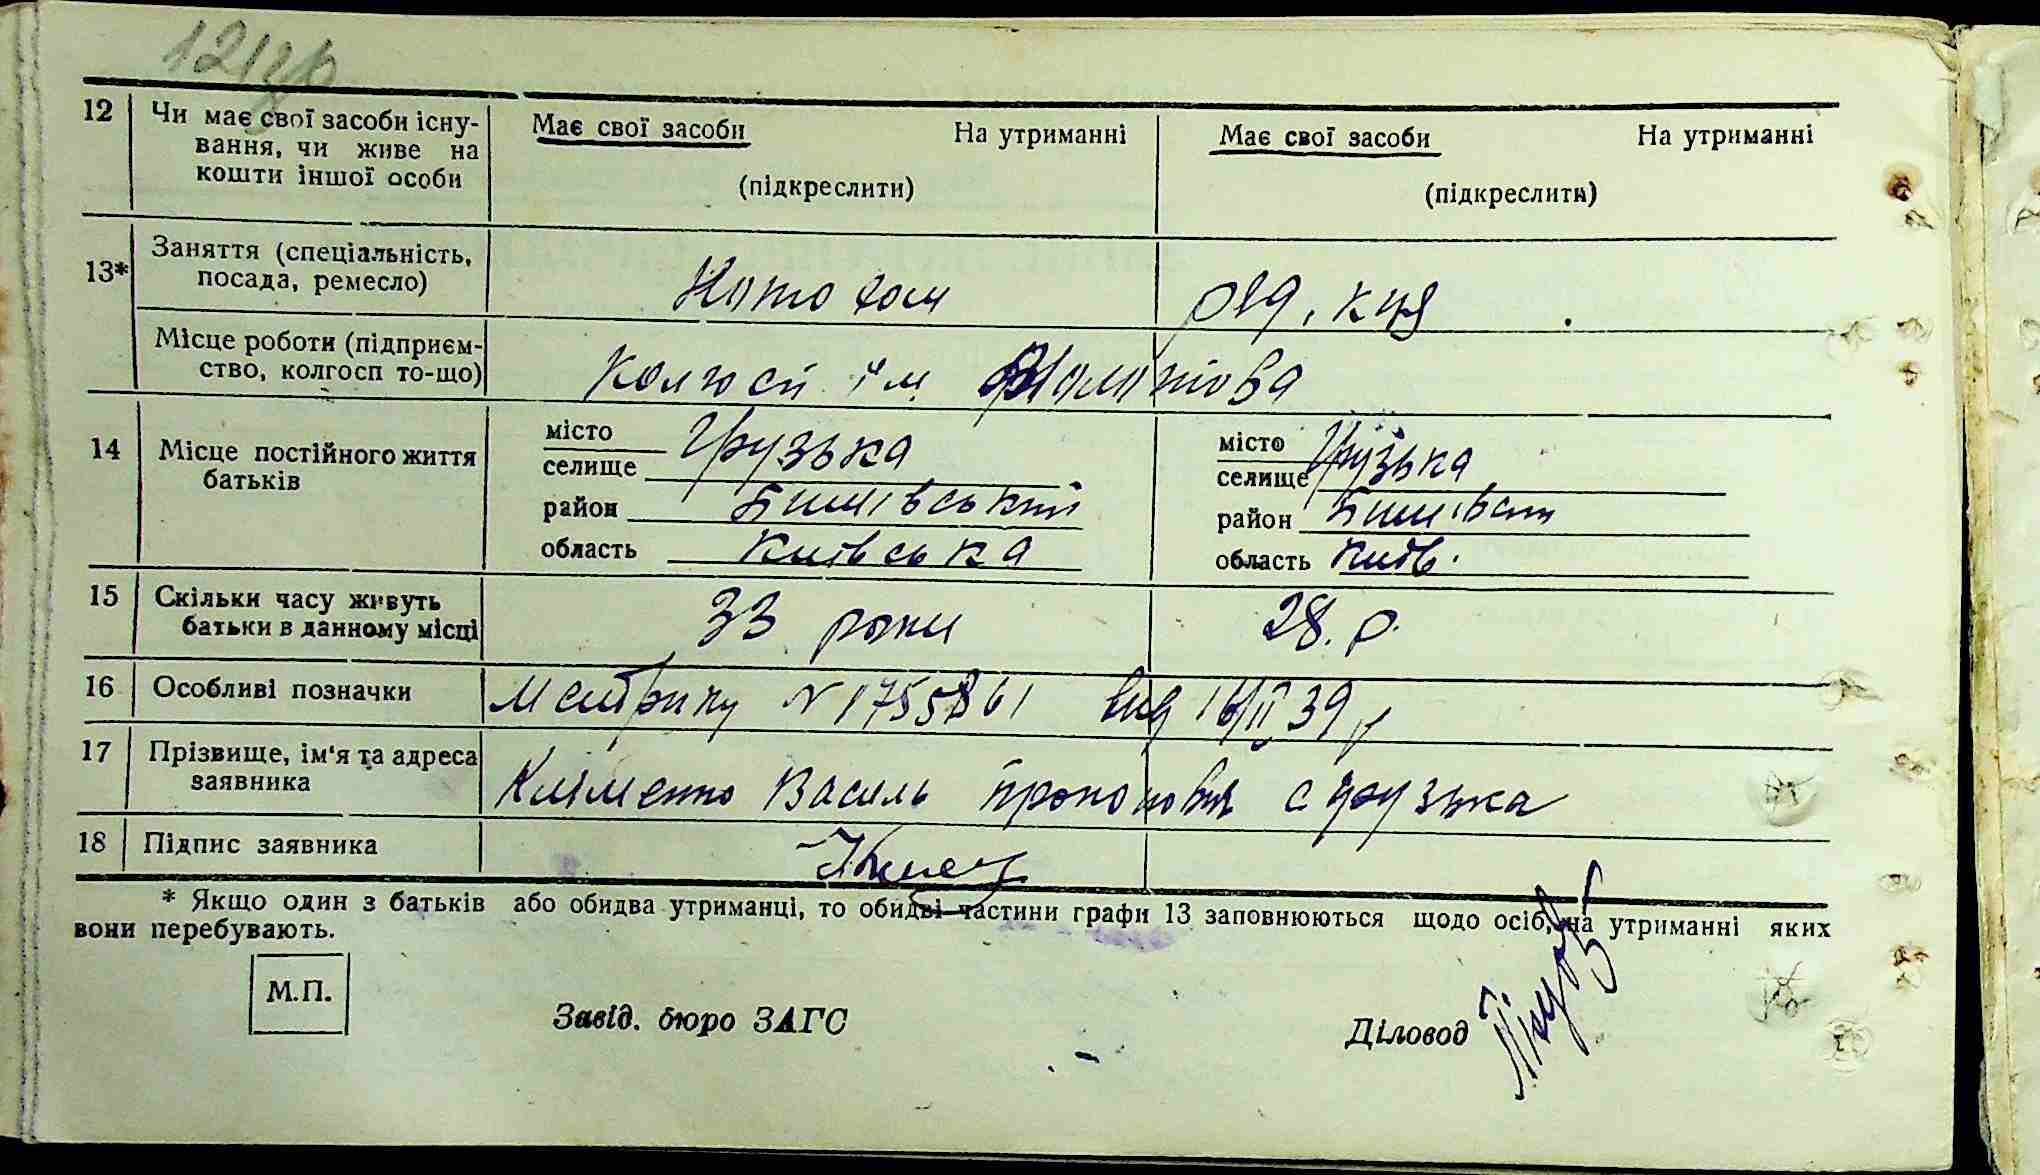 12
Чи має свої засоби існу-
вання, чи живе на
кошти іншої особи
Має свої засоби На утриманні
(підкреслити)
Має свої засоби На утриманні
(підкреслити)
13*
Заняття (спеціальність,
посада, ремесло)
ряд. к-ця
Місце роботи (підприєм-
ство, колгосп то-що)
Колгосп ім Молотова
14
Місце постійного життя
батьків
місто
селище Грузька
район Бишівський
область Київська
місто
селище Грузька
район Бишівськ
область Київ.
15
Скільки часу живуть
батьки в данному місці
33 роки
28. р.
16
Особливі позначки
Метрику N 1755861 вид 16/II 39 р
17
Прізвище, ім'я та адреса
заявника
Кліменко Василь Прокопович с Грузька
18
Підпис заявника
* Якщо один з батьків або обидва утриманці, то обидві частини графи 13 заповнюються щодо осіб, на утриманні яких
вони перебувають.
М.П.
Завід. бюро ЗАГС
Діловод